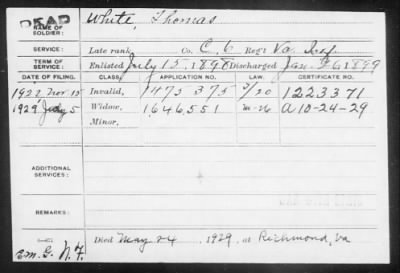 DEAD
NAME OF SOLDIER: White, Thomas
SERVICE: Late rank, Co. C, 6 Reg't Va. Inf.
TERM OF SERVICE: Enlisted July 15, 1898 Discharged Jan. 26 1899
DATE OF FILING. CLASS. APPLICATION NO. LAW. CERTIFICATE NO.
1922, Nov. 15 Invalid, 1475 375 5/20 1223371
1929, July 5 Widow, 1646,551 m-26 A 10-24-29
Minor,
ADDITIONAL SERVICES:
REMARKS:
Em. G. N.F. Died May 24, 1929, at Richmond, Va